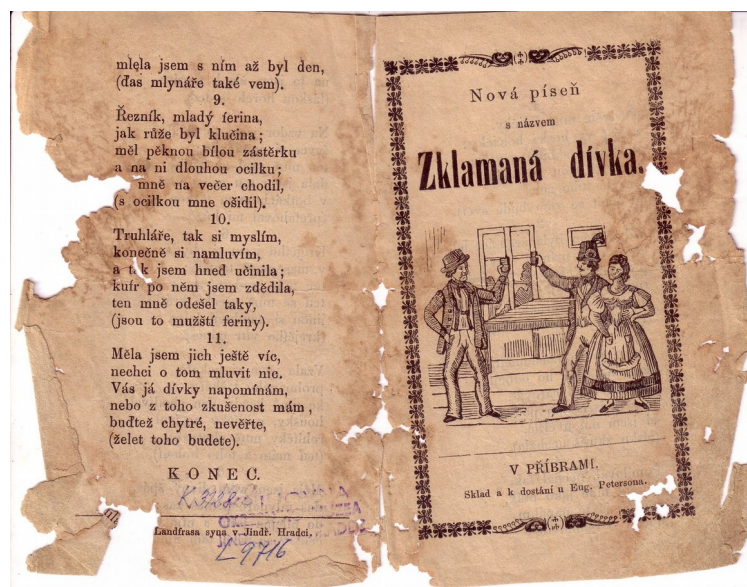 mlela jsem s ním až byl den,
(ďas mlynáře také vem).
9.
Řezník, mladý ferina,
jak růže byl klučina;
měl pěknou bílou zástěrku
a na ni dlouhou ocilku;
mně na večer chodil,
(s ocilkou mne ošidil).
10.
Truhláře, tak si myslím,
konečně si namluvím,
a tak jsem hned učinila;
kufr po něm jsem zdědila,
ten mně odešel taky,
(jsou to mužští feriny).
11.
Měla jsem jich ještě víc,
nechci o tom mluvit nic.
Vás já dívky napomínám,
nebo z toho zkušenost mám,
buďtež chytré, nevěřte,
(želet toho budete).
KONEC.
Landfrasa syna v Jindř. Hradci.
L 9716
Nová píseň
s názvem
Zklamaná dívka.
V PŘÍBRAMI.
Sklad a k dostání u Eug. Petersona.